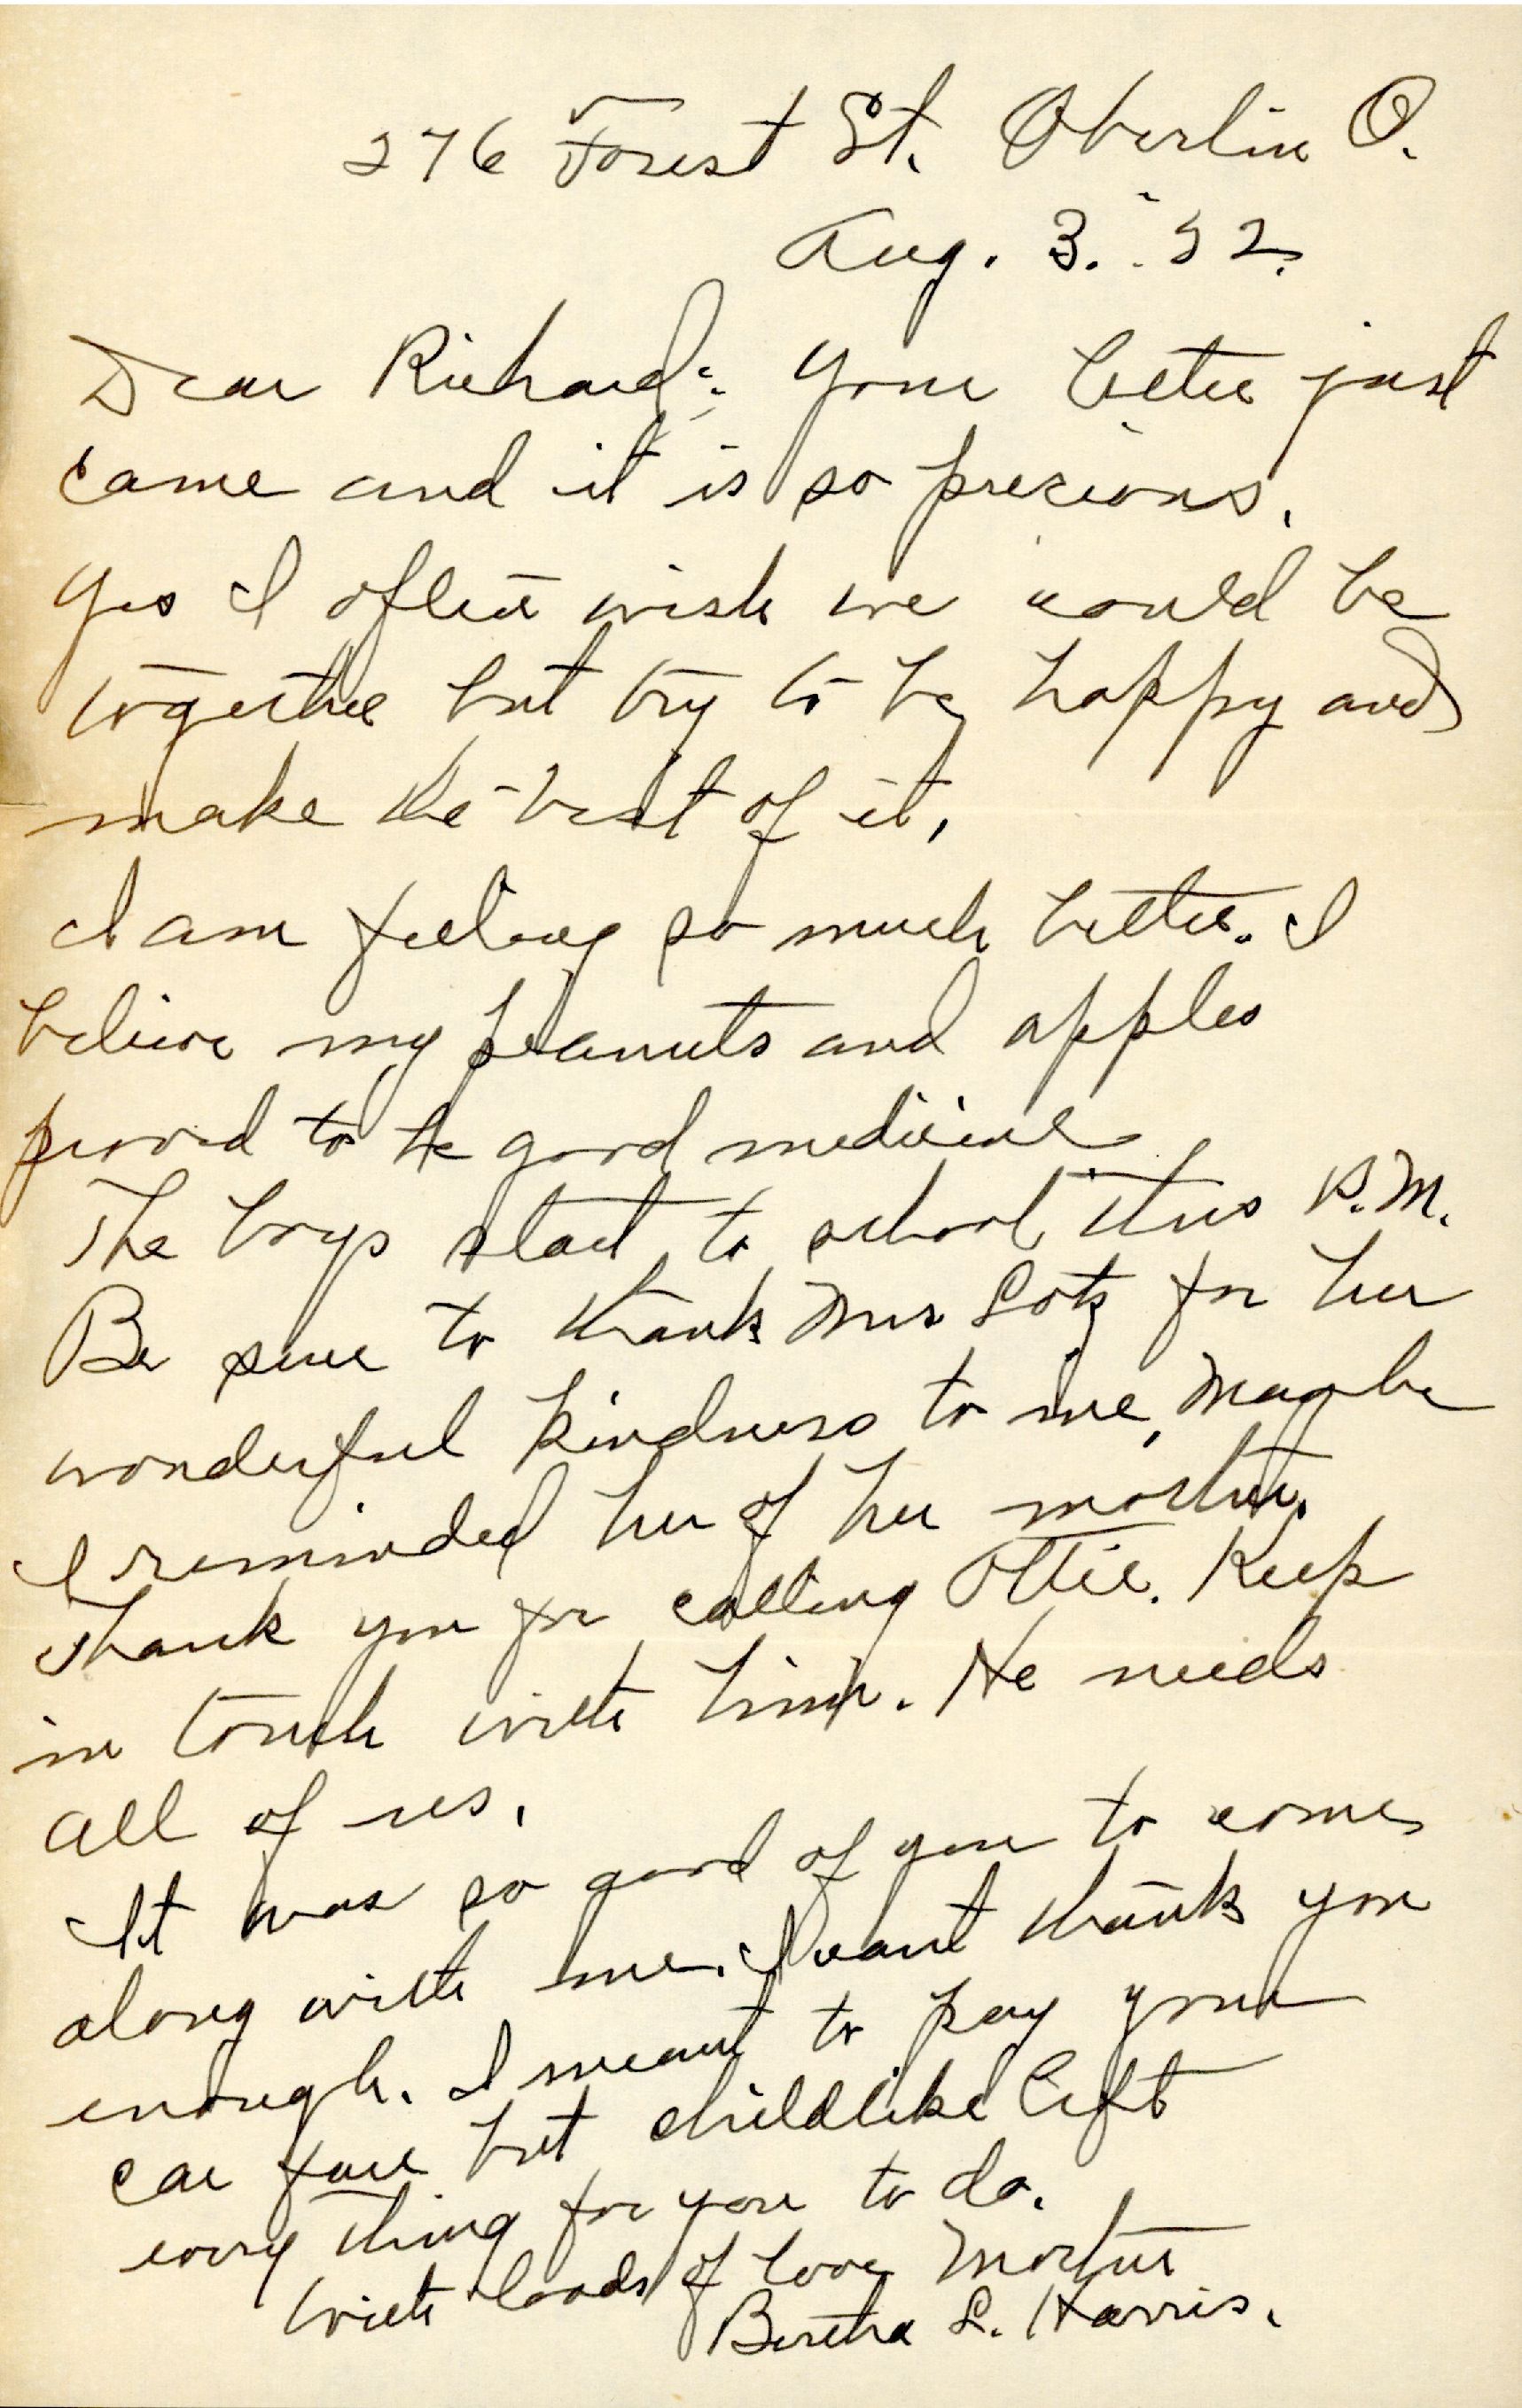 276 Forest St. Oberlin O.
Aug. 3. '52.
Dear Richard: Your letter just
came and it is so precious.
Yes I often wish we could be
together but try to be happy and
make the best of it.
I am feeling so much better. I
believe my peanuts and apples
proved to be good medicine.
The boys start to school this P.M.
Be sure to thank Mrs Lotz for her
wonderful kindness to me, maybe
I reminded her of her mother.
Thank you for calling Ottie. Keep
in touch with him. He needs
all of us.
It was so good of you to come
along with me. I want thank you
enough. I meant to pay your
car fare but childlike left
every thing for you to do.
With loads of love Mother
Bertha L. Harris.